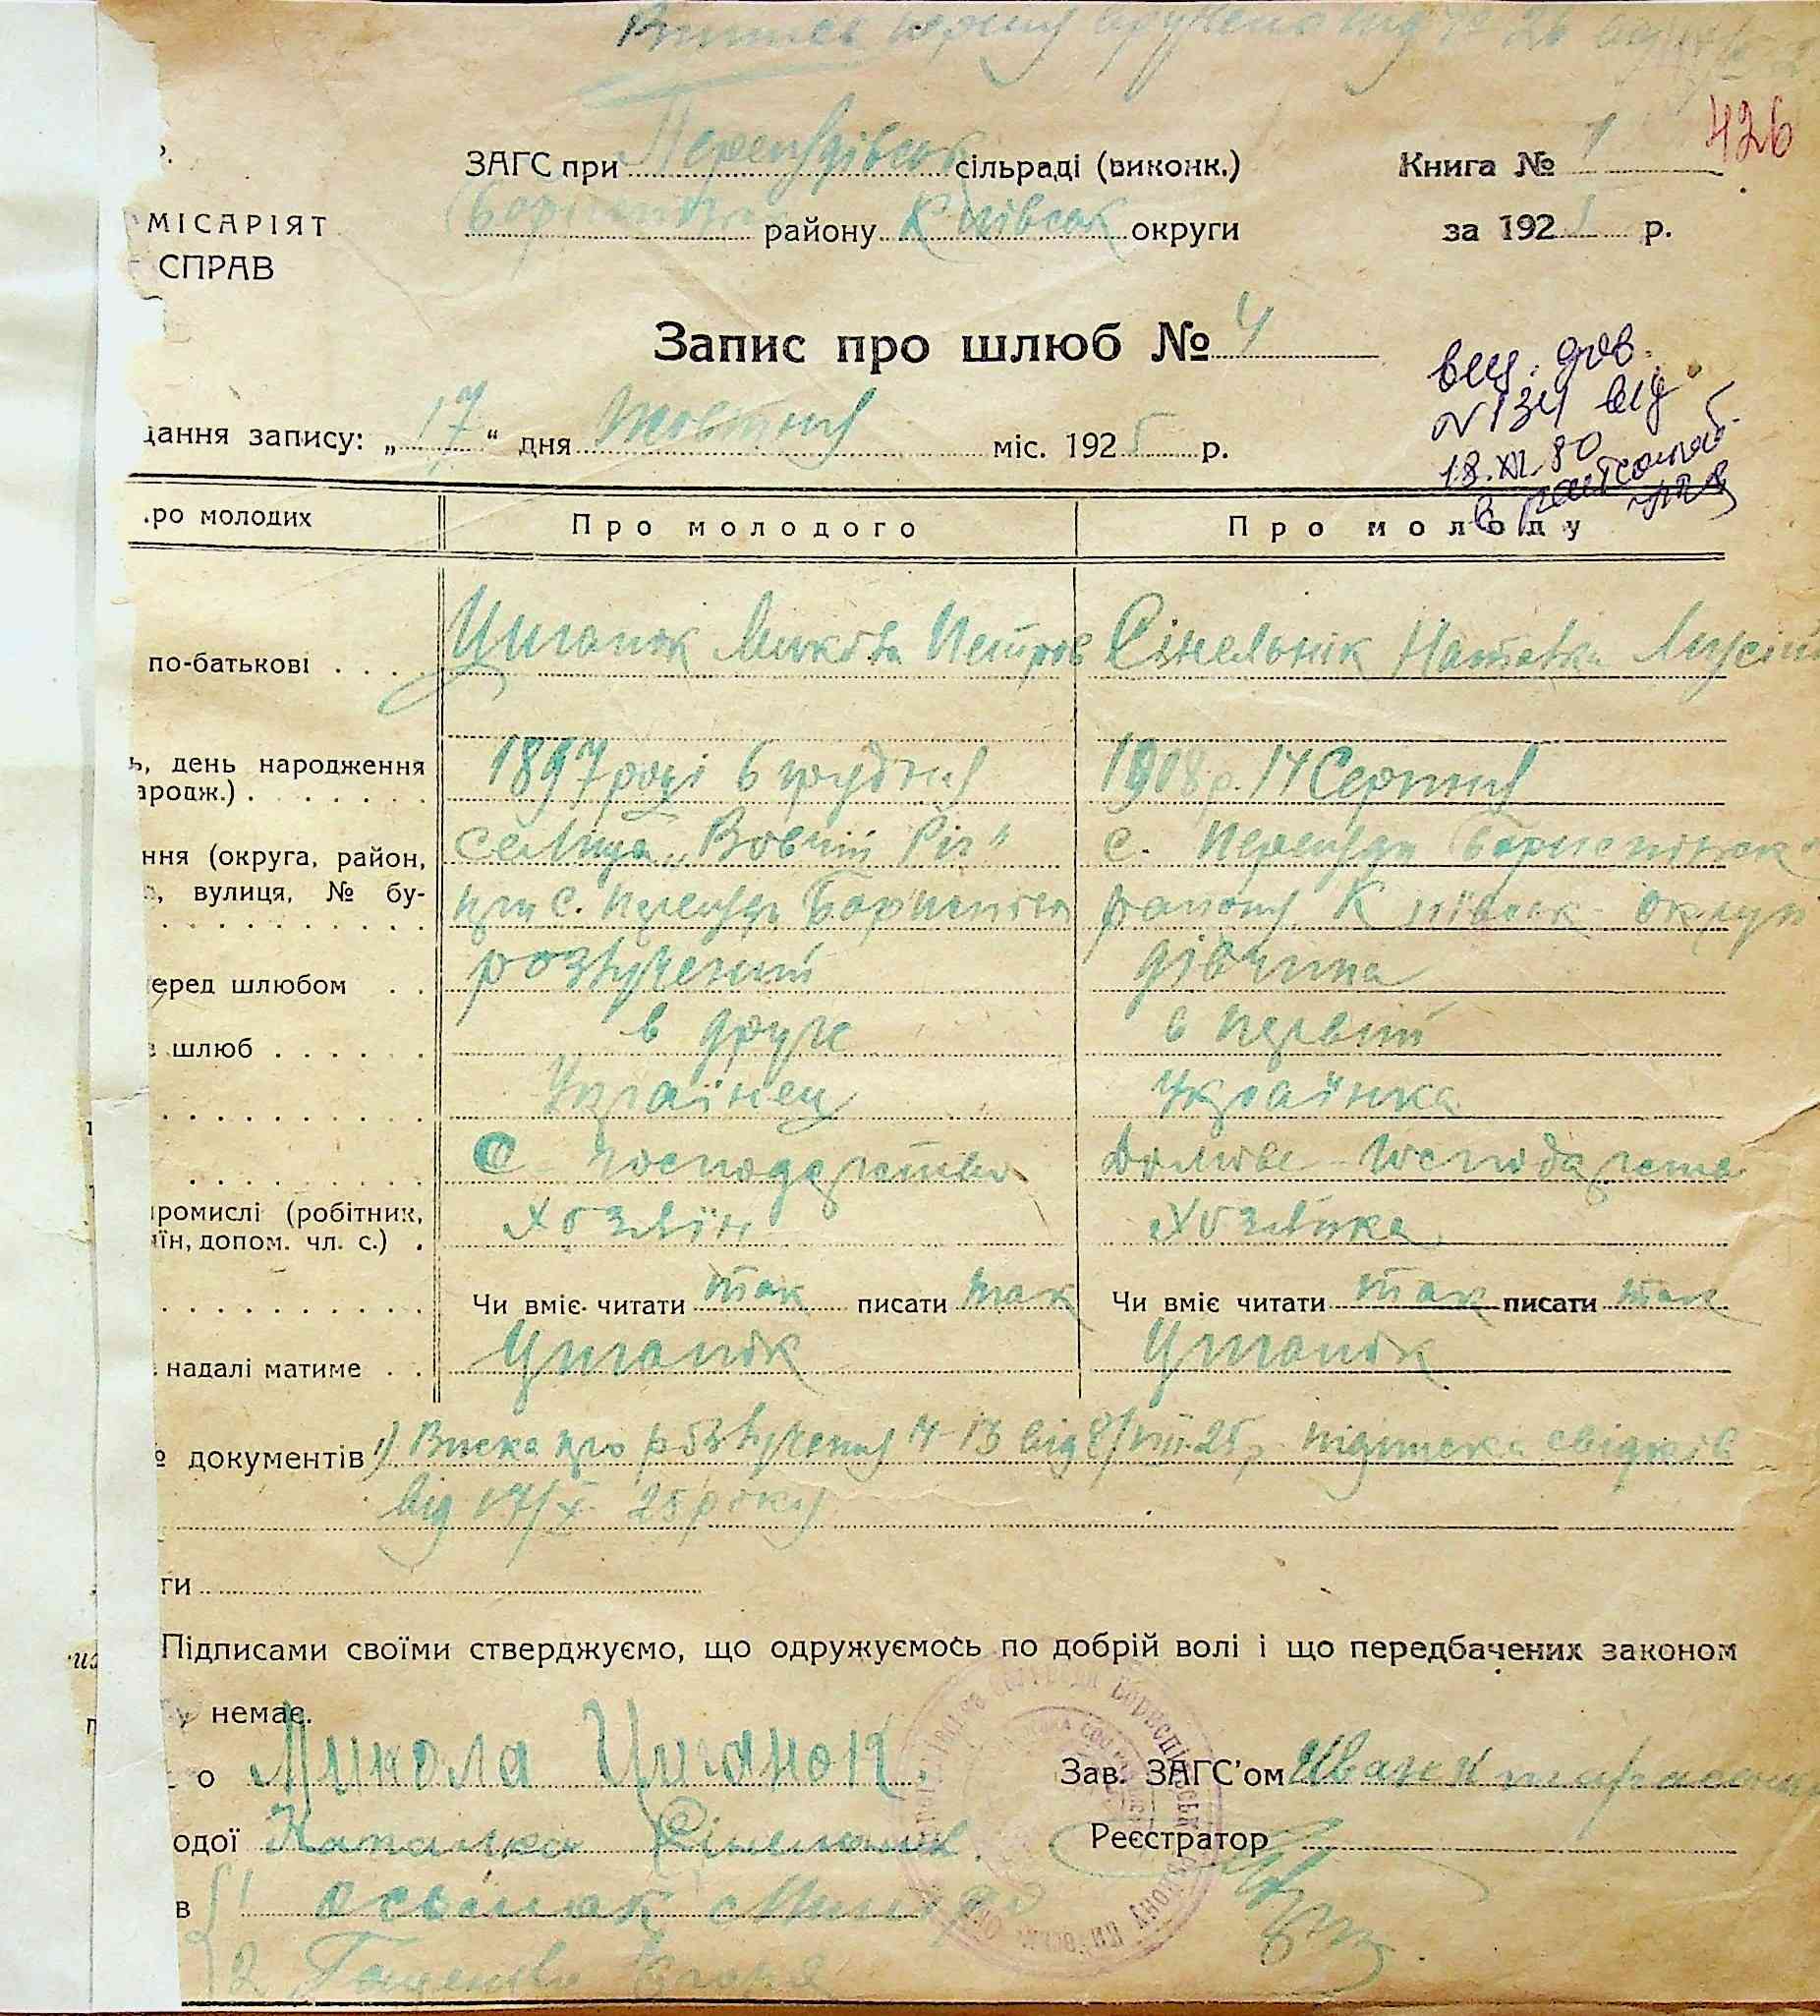 426
ЗАГС при сільраді (виконк.) Книга № 1
МІСАРІЯТ
району Київськ округи за 192 р.
СПРАВ
Запис про шлюб № 4
вид. дов.
№134 від
18.XII.80
дання запису: „17“ дня Жовтня міс. 1925 р.
.ро молодих Про молодого Про молоду
по-батькові . . . . Циганок Микола Петров Сінельник Наталка Мусіїв
ь, день народження 1897 році 6 грудня 1908 р. 14 Серпня
ародж.) . . . . . . .
ння (округа, район, селища „Вовчий Ріг“ с.
, вулиця, № бу- при с. району Київськ округи
еред шлюбом . . розлучений дівчина
шлюб . . . . . . в друге в первий
Українец Українка
С господарство Домове господарство
ромислі (робітник, Хозяїн Хозяйка
їн, допом. чл. с.) .
Чи вміє читати так писати так Чи вміє читати так писати так
надалі матиме . . Циганок Циганок
№ документів 1) про розлучення № 13 від 8/VIII-25 р. підписка свідків
від 17/X 25 року
ги
Підписами своїми стверджуємо, що одружуємось по добрій волі і що передбачених законом
у немає.
о Микола Циганок. Зав. ЗАГС'ом
одої Наталка Сінельник. Реєстратор
в 1
2